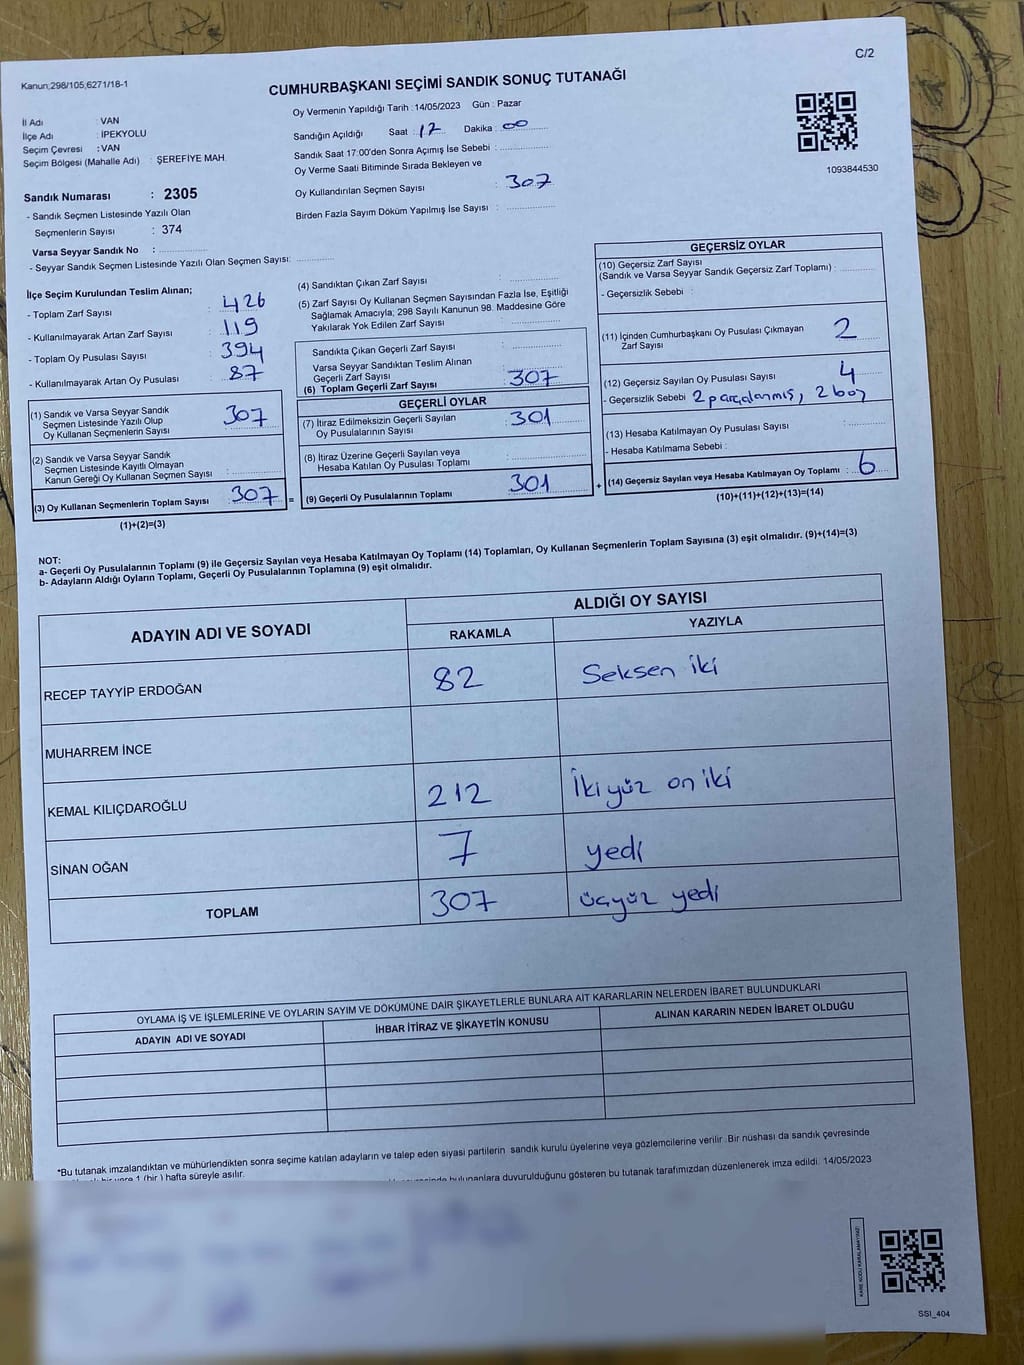 C/2
Kanun;298/105;6271/18-1
CUMHURBAŞKANI SEÇİMİ SANDIK SONUÇ TUTANAĞI
Oy Vermenin Yapıldığı Tarih : 14/05/2023 Gün : Pazar
İl Adı : VAN
İlçe Adı : İPEKYOLU
Seçim Çevresi : VAN
Seçim Bölgesi (Mahalle Adı) : ŞEREFİYE MAH.
Sandığın Açıldığı Saat : 17 Dakika : 00
Sandık Saat 17:00'den Sonra Açımış İse Sebebi :
Oy Verme Saati Bitiminde Sırada Bekleyen ve
Oy Kullandırılan Seçmen Sayısı : 307
Birden Fazla Sayım Döküm Yapılmış İse Sayısı :
1093844530
Sandık Numarası : 2305
- Sandık Seçmen Listesinde Yazılı Olan
Seçmenlerin Sayısı : 374
Varsa Seyyar Sandık No :
- Seyyar Sandık Seçmen Listesinde Yazılı Olan Seçmen Sayısı:
İlçe Seçim Kurulundan Teslim Alınan;
- Toplam Zarf Sayısı : 426
- Kullanılmayarak Artan Zarf Sayısı : 119
- Toplam Oy Pusulası Sayısı : 394
- Kullanılmayarak Artan Oy Pusulası : 87
(1) Sandık ve Varsa Seyyar Sandık
Seçmen Listesinde Yazılı Olup
Oy Kullanan Seçmenlerin Sayısı : 307
(2) Sandık ve Varsa Seyyar Sandık
Seçmen Listesinde Kayıtlı Olmayan
Kanun Gereği Oy Kullanan Seçmen Sayısı :
(3) Oy Kullanan Seçmenlerin Toplam Sayısı : 307 =
(1)+(2)=(3)
(4) Sandıktan Çıkan Zarf Sayısı :
(5) Zarf Sayısı Oy Kullanan Seçmen Sayısından Fazla İse, Eşitliği
Sağlamak Amacıyla; 298 Sayılı Kanunun 98. Maddesine Göre
Yakılarak Yok Edilen Zarf Sayısı :
Sandıkta Çıkan Geçerli Zarf Sayısı :
Varsa Seyyar Sandıktan Teslim Alınan
Geçerli Zarf Sayısı :
(6) Toplam Geçerli Zarf Sayısı : 307
GEÇERLİ OYLAR
(7) İtiraz Edilmeksizin Geçerli Sayılan
Oy Pusulalarının Sayısı : 301
(8) İtiraz Üzerine Geçerli Sayılan veya
Hesaba Katılan Oy Pusulası Toplamı :
(9) Geçerli Oy Pusulalarının Toplamı : 301 +
GEÇERSİZ OYLAR
(10) Geçersiz Zarf Sayısı
(Sandık ve Varsa Seyyar Sandık Geçersiz Zarf Toplamı) :
- Geçersizlik Sebebi :
(11) İçinden Cumhurbaşkanı Oy Pusulası Çıkmayan
Zarf Sayısı : 2
(12) Geçersiz Sayılan Oy Pusulası Sayısı : 4
- Geçersizlik Sebebi : 2 parçalanmış, 2 boş
(13) Hesaba Katılmayan Oy Pusulası Sayısı :
- Hesaba Katılmama Sebebi :
(14) Geçersiz Sayılan veya Hesaba Katılmayan Oy Toplamı : 6
(10)+(11)+(12)+(13)=(14)
NOT:
a- Geçerli Oy Pusulalarının Toplamı (9) ile Geçersiz Sayılan veya Hesaba Katılmayan Oy Toplamı (14) Toplamları, Oy Kullanan Seçmenlerin Toplam Sayısına (3) eşit olmalıdır. (9)+(14)=(3)
b- Adayların Aldığı Oyların Toplamı, Geçerli Oy Pusulalarının Toplamına (9) eşit olmalıdır.
ADAYIN ADI VE SOYADI
ALDIĞI OY SAYISI
RAKAMLA YAZIYLA
RECEP TAYYİP ERDOĞAN 82 Seksen iki
MUHARREM İNCE
KEMAL KILIÇDAROĞLU 212 İkiyüz on iki
SİNAN OĞAN 7 yedi
TOPLAM 307 üçyüz yedi
OYLAMA İŞ VE İŞLEMLERİNE VE OYLARIN SAYIM VE DÖKÜMÜNE DAİR ŞİKAYETLERLE BUNLARA AİT KARARLARIN NELERDEN İBARET BULUNDUKLARI
ADAYIN ADI VE SOYADI İHBAR İTİRAZ VE ŞİKAYETİN KONUSU ALINAN KARARIN NEDEN İBARET OLDUĞU
*Bu tutanak imzalandıktan ve mühürlendikten sonra seçime katılan adayların ve talep eden siyasi partilerin sandık kurulu üyelerine veya gözlemcilerine verilir. Bir nüshası da sandık çevresinde
bir yere 1 (bir ) hafta süreyle asılır.
bulunanlara duyurulduğunu gösteren bu tutanak tarafımızdan düzenlenerek imza edildi. 14/05/2023
KARE KODU KARALAMAYINIZ!
SSI_404